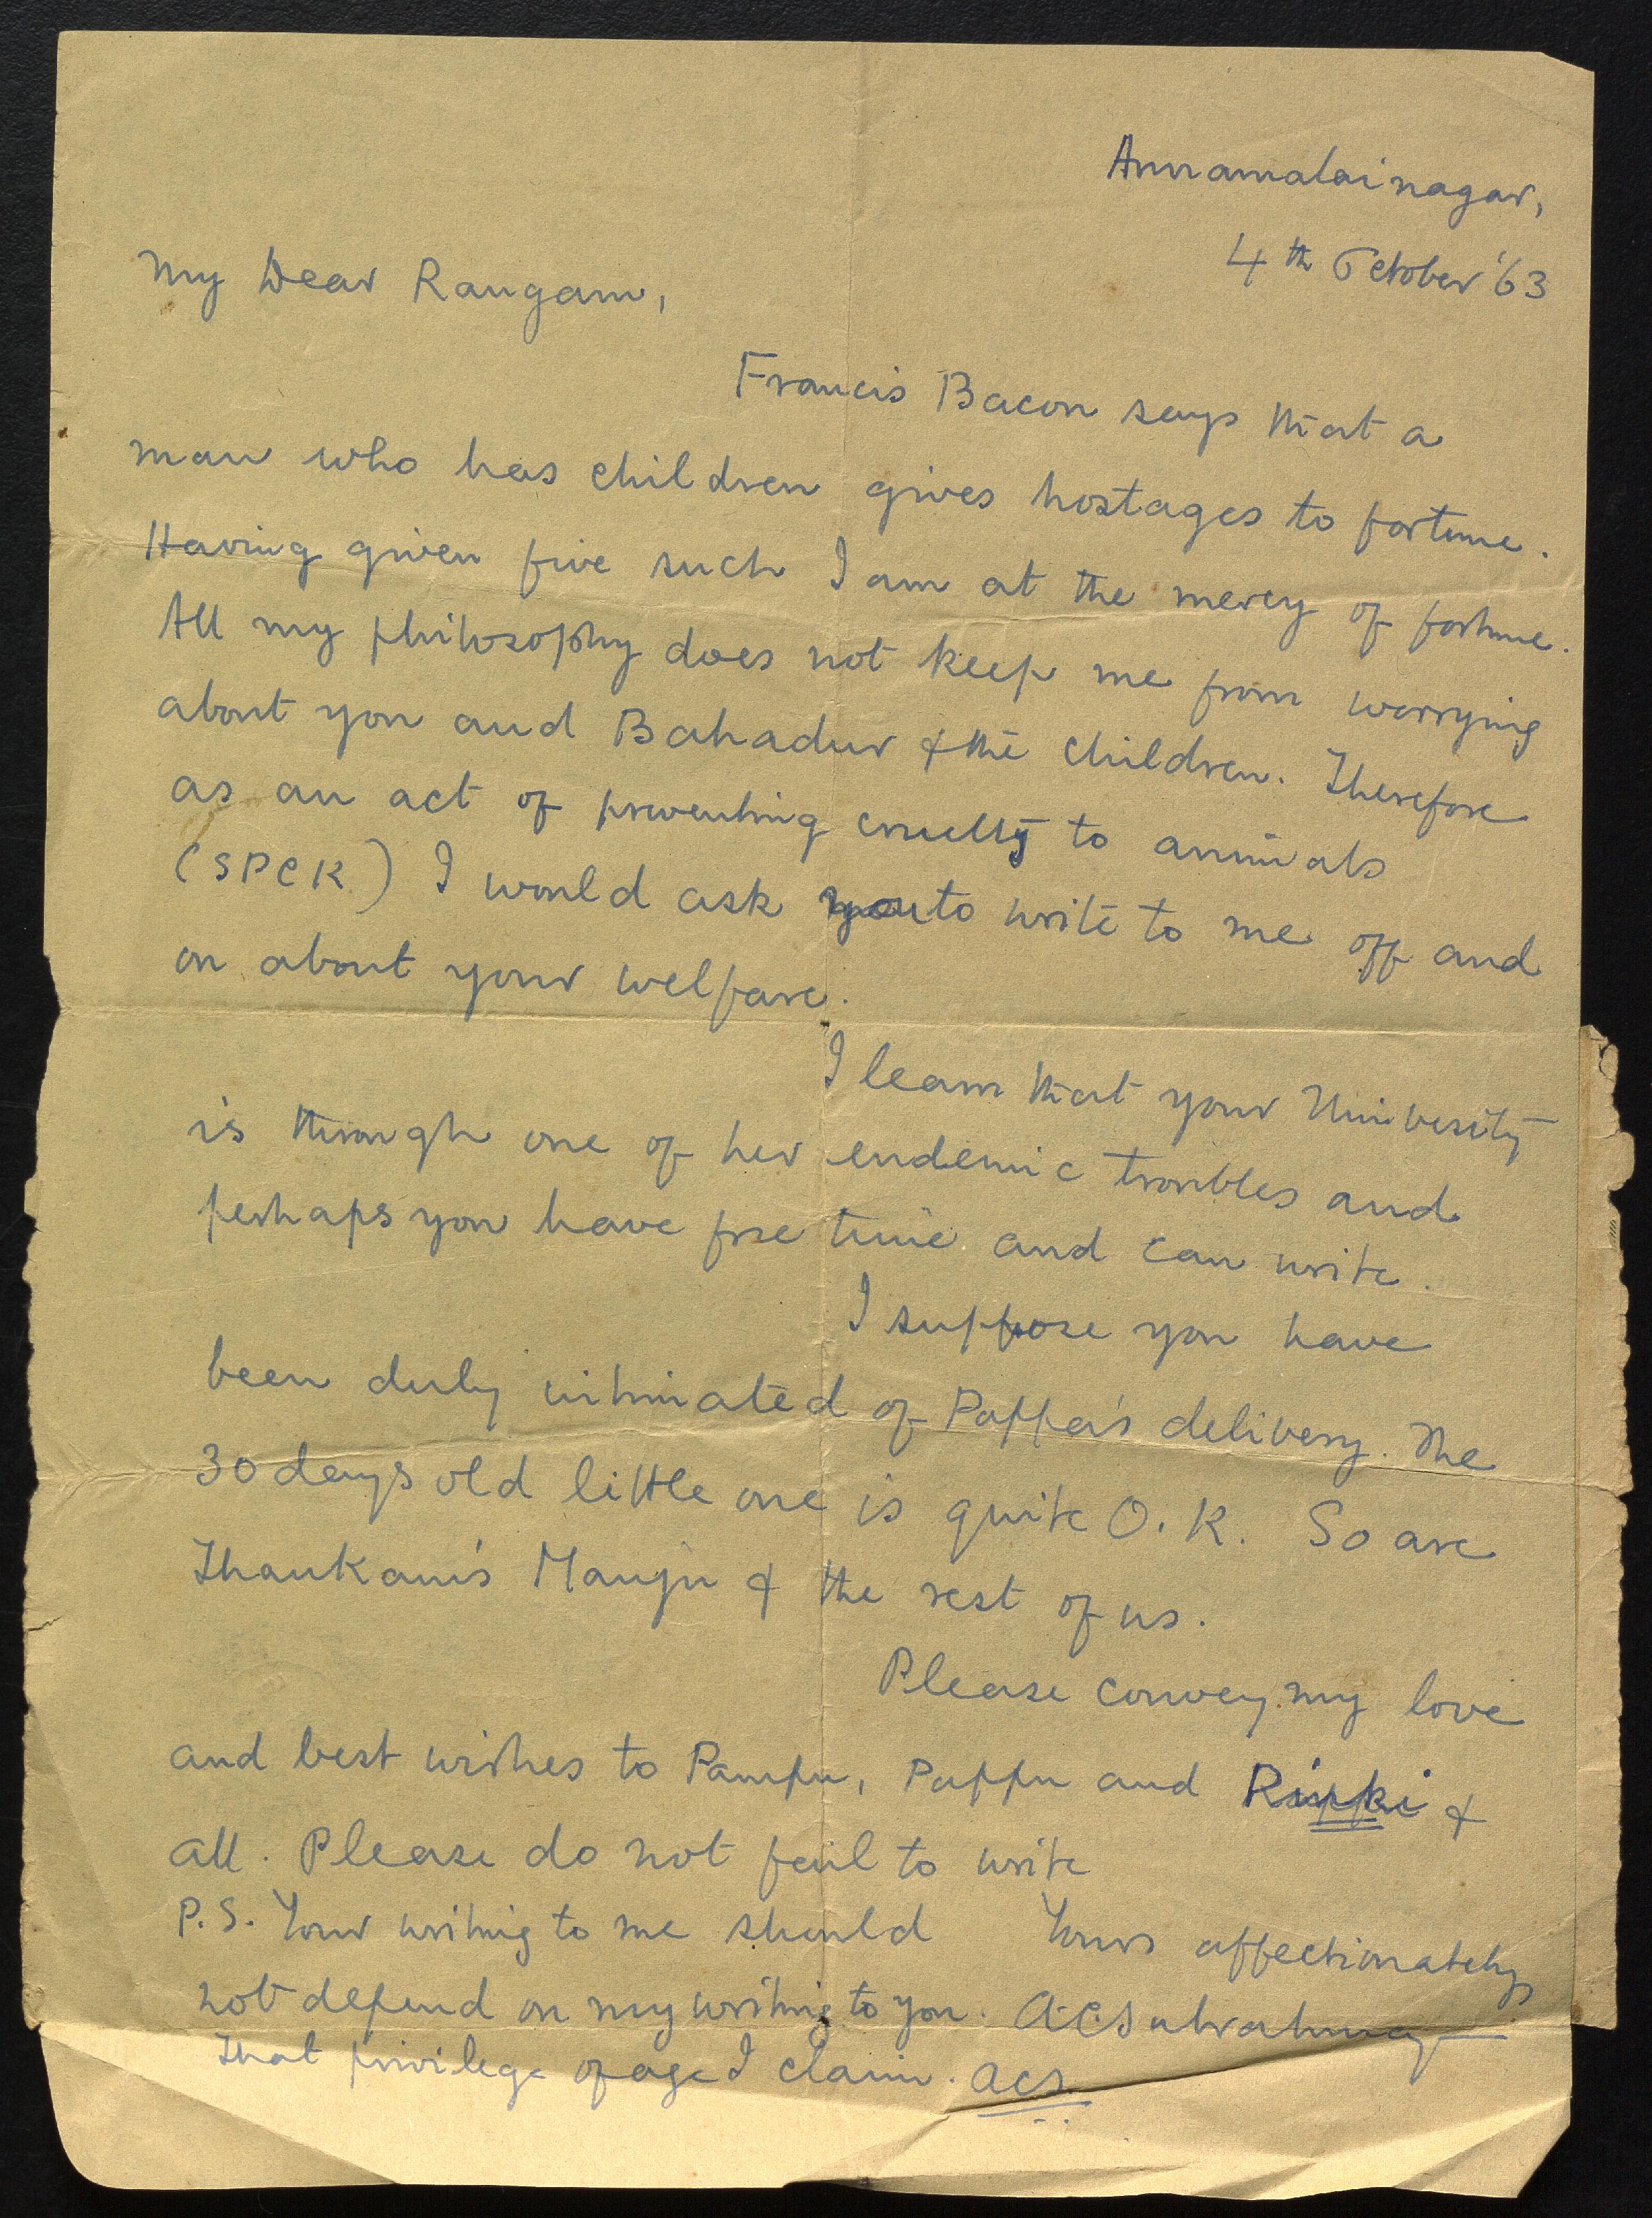 Annamalainagar,
4th October '63
My Dear Rangam,
Francis Bacon says that a
man who has children gives hostages to fortune.
Having given five such I am at the mercy of fortune.
All my philosophy does not keep me from worrying
about you and Bahadur & the children. Therefore
as an act of preventing cruelty to animals
(SPCK) I would ask you to write to me off and
on about your welfare.
I learn that your University
is through one of her endemic troubles and
perhaps you have free time and can write.
I suppose you have
been duly intimated of Pappa's delivery. The
30 days old little one is quite O.K. So are
Thankam's Manju & the rest of us.
Please convey my love
and best wishes to Pampu, Pappu and &
all. Please do not fail to write
P.S. Your writing to me should
not depend on my writing to you.
That privilege of age I claim. ACS.
Yours affectionately,